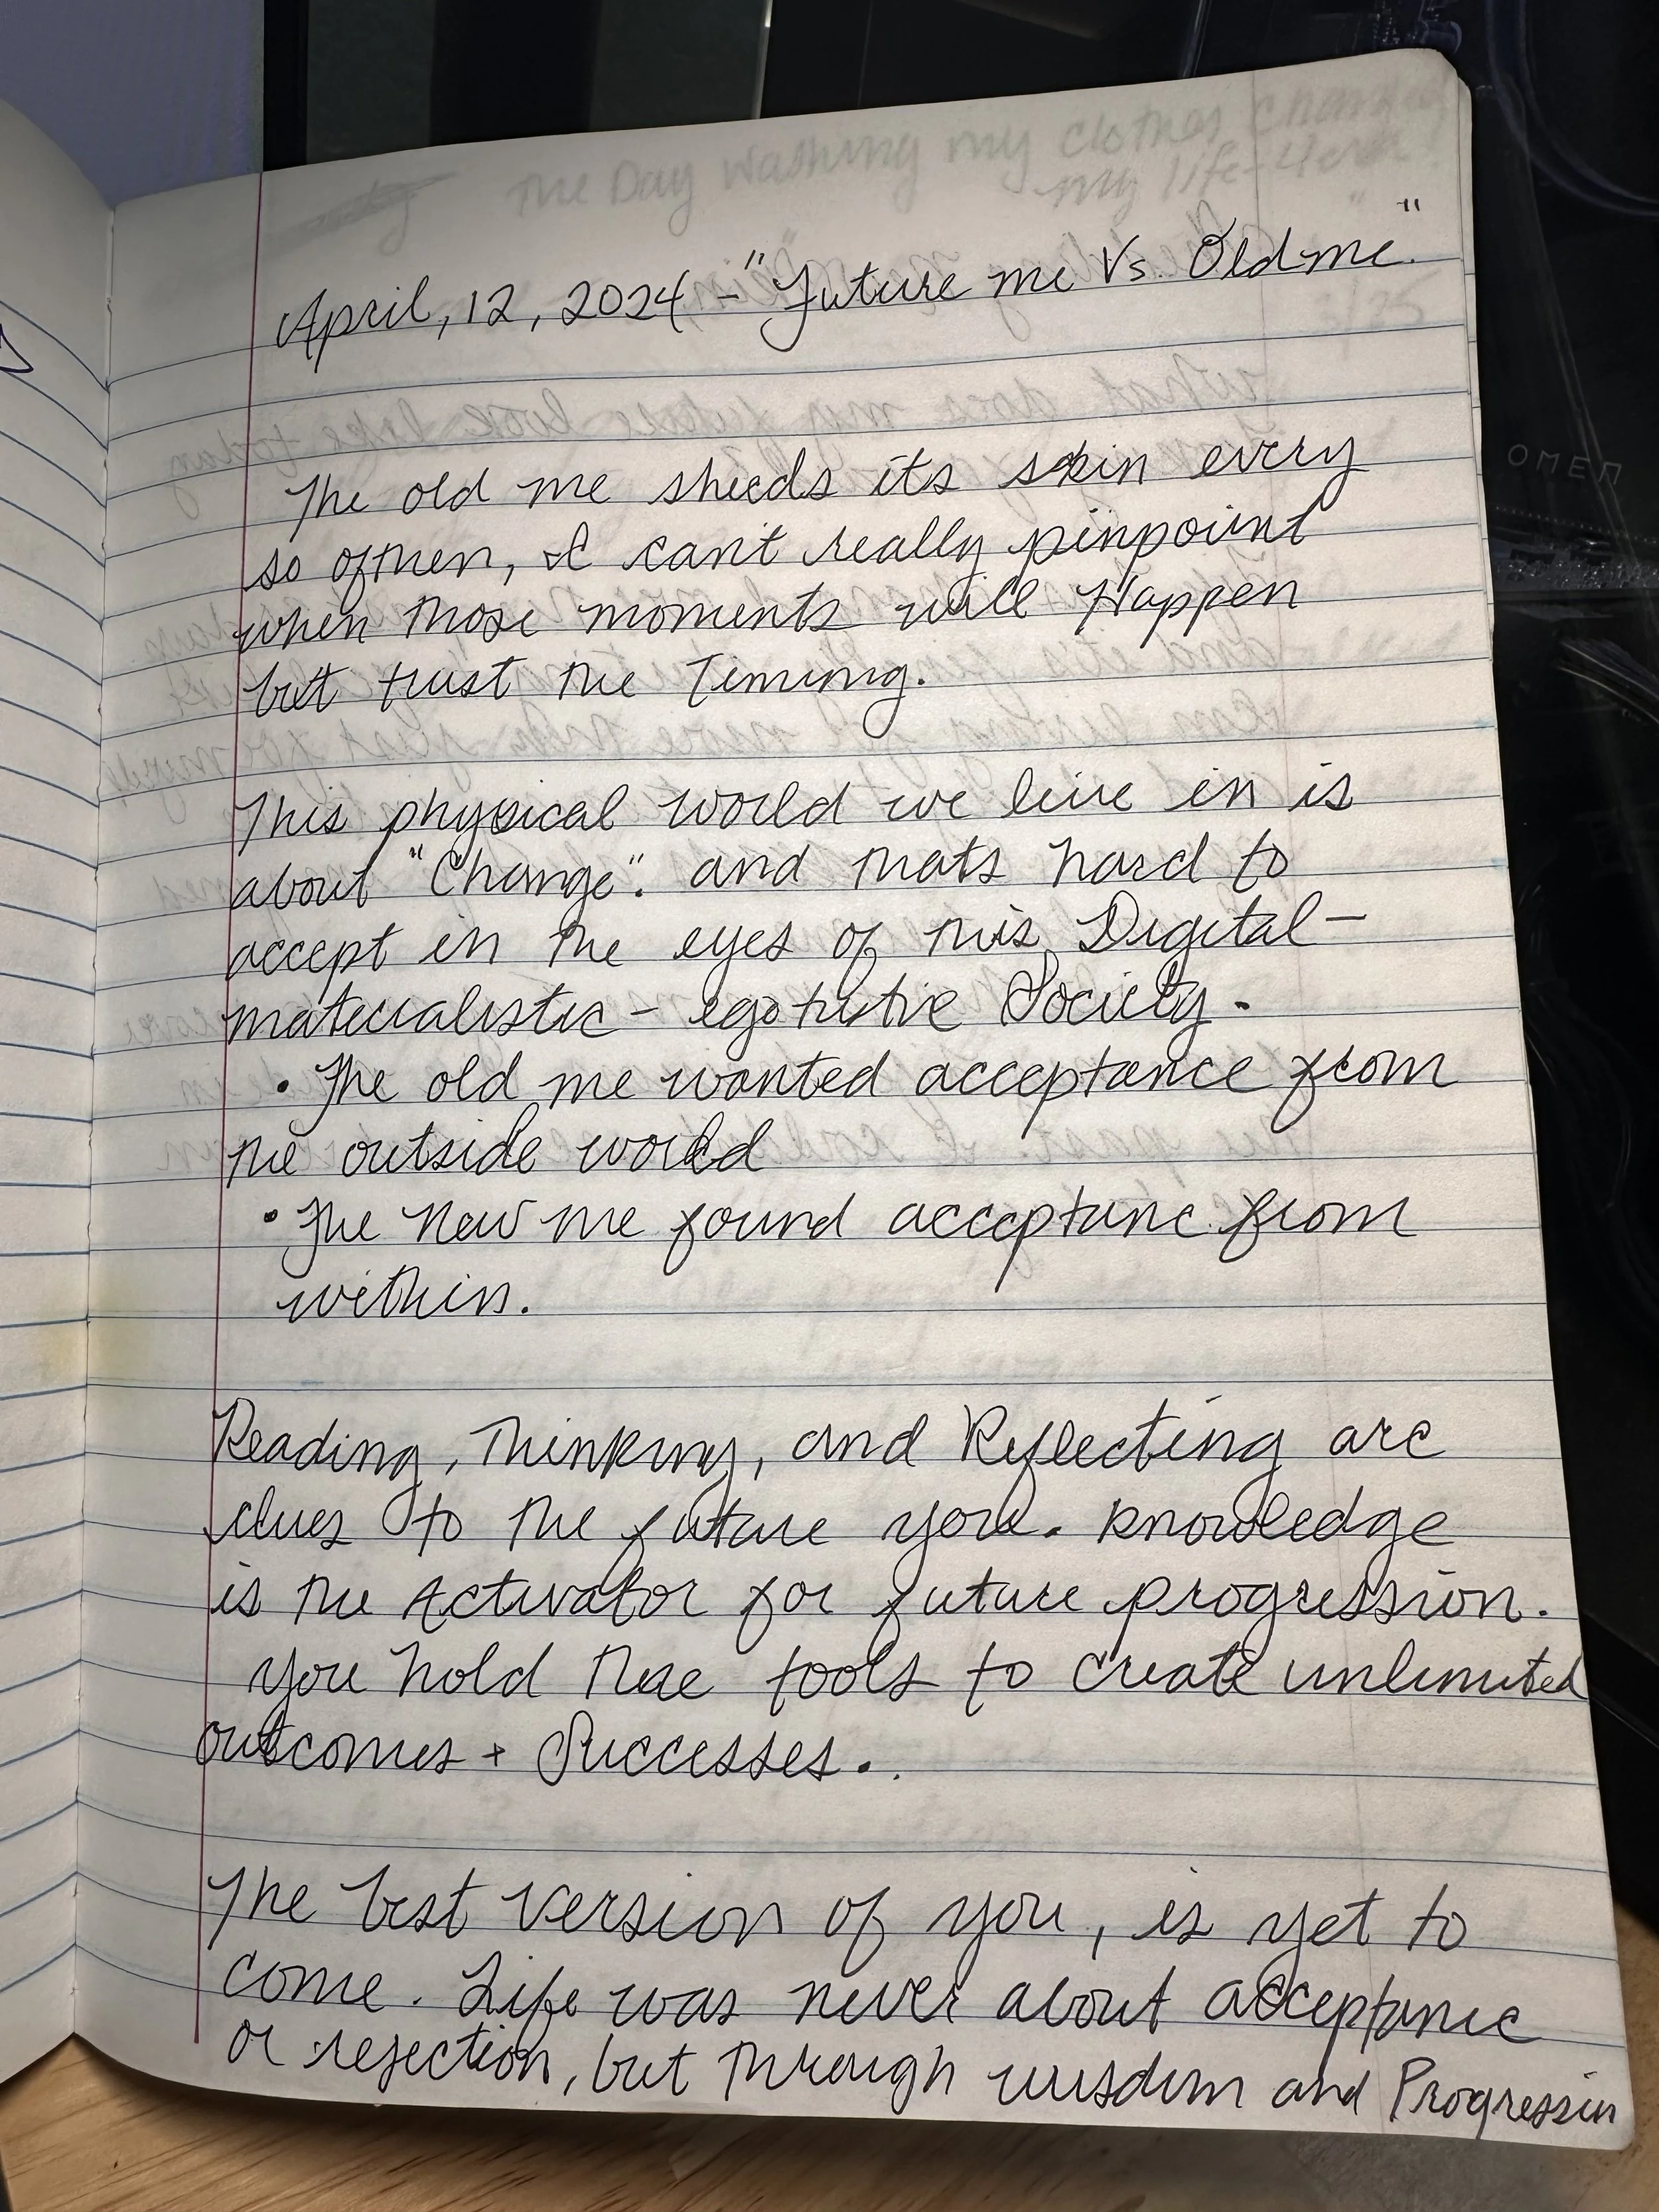 The Day Washing my Clothes Changed
my life-
April, 12, 2024 - "Future me Vs. Old me"
The old me sheeds its skin every
so often, I can't really pinpoint
when those moments will Happen
but trust the Timing.
This physical world we live in is
about "Change". and thats hard to
accept in the eyes of this Digital-
materialistic - egotistive Society.
• The old me wanted acceptance from
the outside world
• The New me found acceptance from
within.
Reading, Thinking, and Reflecting are
clues to the future you. Knowledge
is the Activator for future progression.
You hold the tools to create unlimited
outcomes + Successes.
The best version of you, is yet to
come. Life was never about acceptance
or rejection, but through wisdom and Progression
OMEN